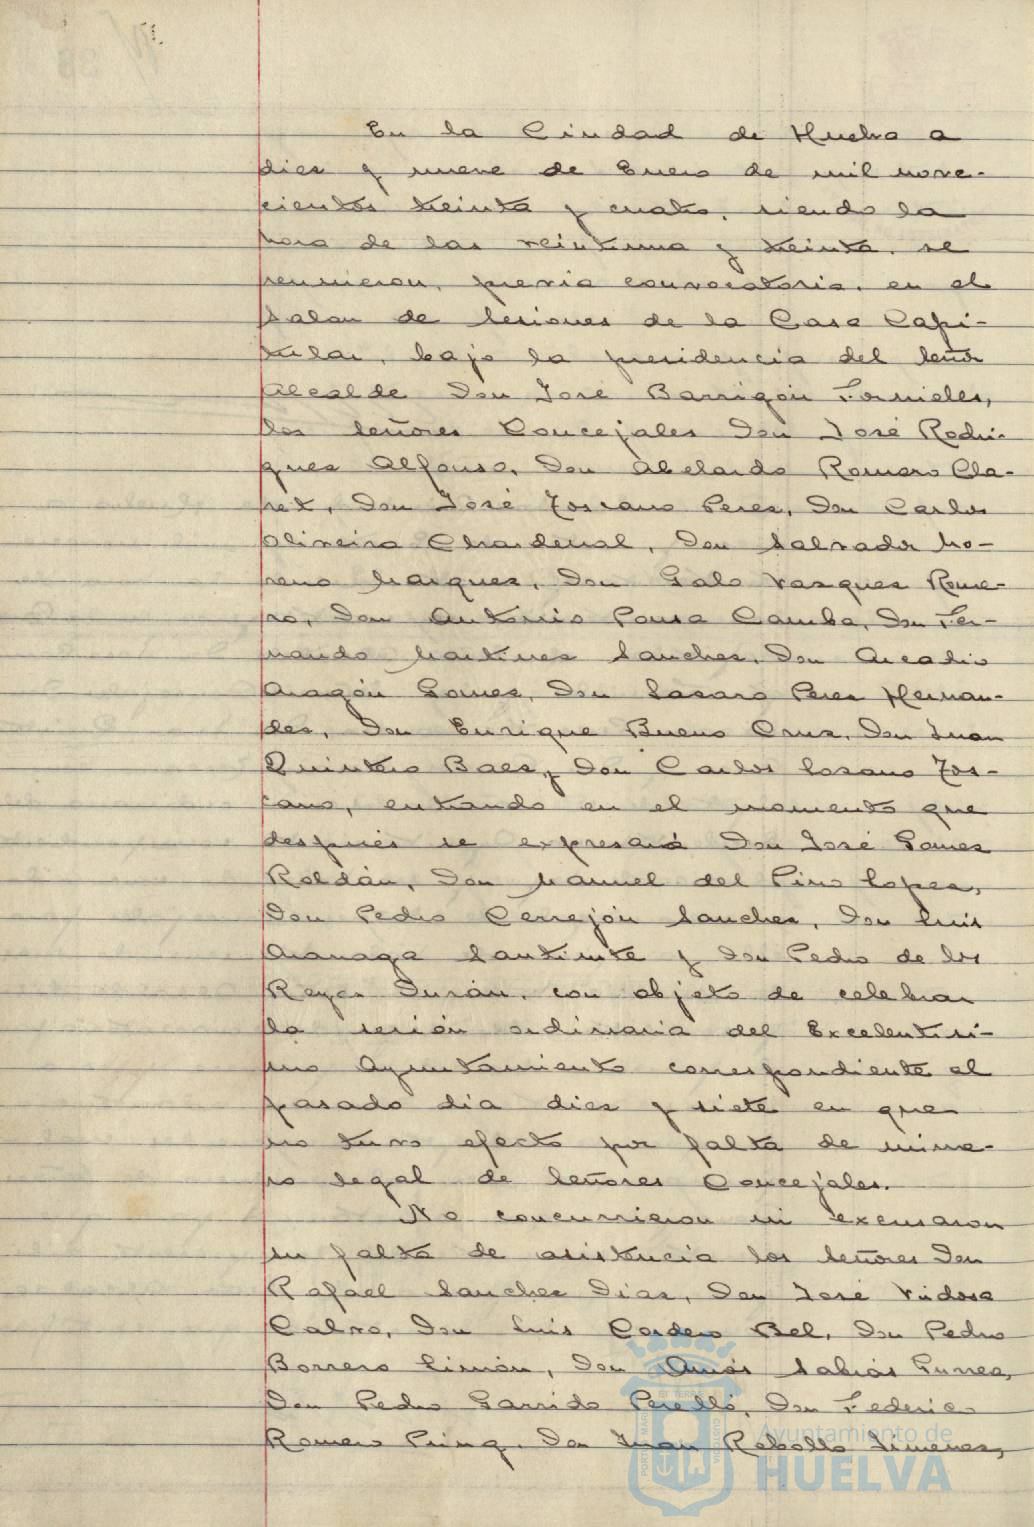 En la Ciudad de Huelva a
diez y nueve de Enero de mil nove-
cientos treinta y cuatro, siendo la
hora de las veintiuna y treinta, se
reunieron, previa convocatoria, en el
Salon de Sesiones de la Casa Capi-
tular, bajo la presidencia del Señor
Alcalde Don José Barrigón Fornieles,
los Señores Concejales Don José Rodri-
guez Alfonso, Don Abelardo Romero Cla-
ret, Don José Toscano Perez, Don Carlos
Oliveira Chardenal, Don Salvador Mo-
reno Marquez, Don Galo Vazquez Rome-
ro, Don Antonio Pousa Camba, Don Fer-
nando Martinez Sanchez, Don Arcadio
Aragón Gomez, Don Lazaro Perez Hernan-
dez, Don Enrique Bueno Cruz, Don Juan
Quintero Baez y Don Carlos Lozano Tos-
cano, entrando en el momento que
después se expresará Don José Gomez
Roldán, Don Manuel del Pino Lopez,
Don Pedro Cerrejón Sanchez, Don Luis
Aranaga Santirite y Don Pedro de los
Reyes Durán, con objeto de celebrar
la sesión ordinaria del Excelentisi-
mo Ayuntamiento correspondiente al
pasado dia diez y siete en que
no tuvo efecto por falta de núme-
ro legal de Señores Concejales.
No concurrieron ni excusaron
su falta de asistencia los Señores Don
Rafael Sanchez Diaz, Don José Vidosa
Calvo, Don Luis Cordero Bel, Don Pedro
Borrero Limón, Don Amós Sabrás Gurrea,
Don Pedro Garrido Perelló, Don Federico
Romero Don Juan Rebollo Jimenez,
Ayuntamiento de
HUELVA